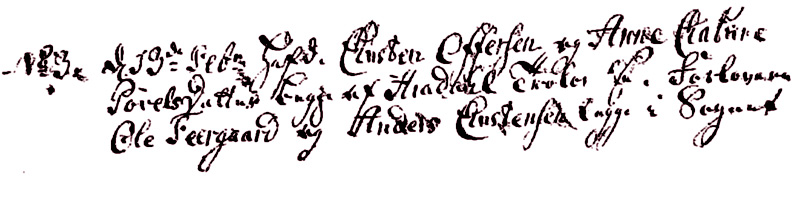 No 3. d 13de Febr. Hafde Christen Offersen og Anne Cathrine
Povels Datter begge af Trolor for. Forlovere
Ole Feergaard og Anders Christensen begge i Sognet